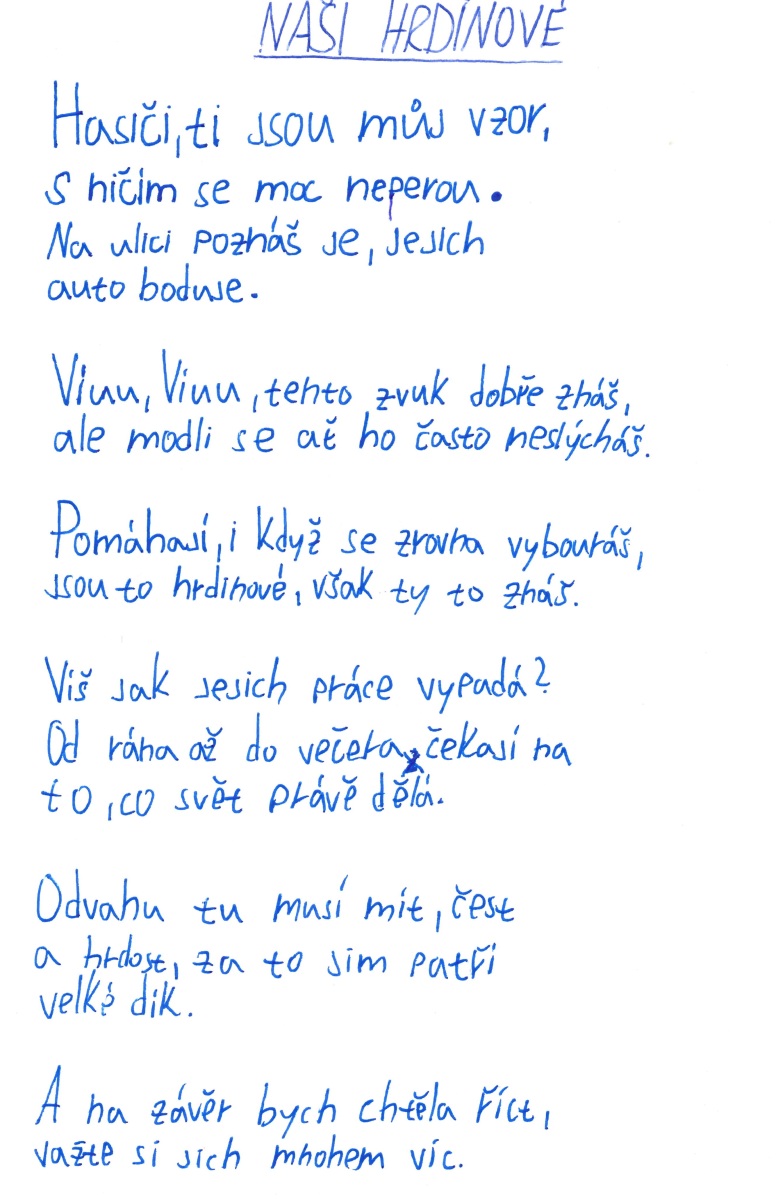 NAŠI HRDINOVÉ
Hasiči, ti jsou můj vzor,
S ničím se moc neperou.
Na ulici poznáš je, jejich
auto boduje.
Vínu, Vínu, tento zvuk dobře znáš,
ale modli se ať ho často neslýcháš.
Pomáhají, i když se zrovna vybouráš,
jsou to hrdinové, však ty to znáš.
Víš jak jejich práce vypadá?
Od rána až do večera, čekají na
to, co svět právě dělá.
Odvahu tu musí mít, čest
a hrdost, za to jim patří
velký dík.
A na závěr bych chtěla říct,
važte si jich mnohem víc.